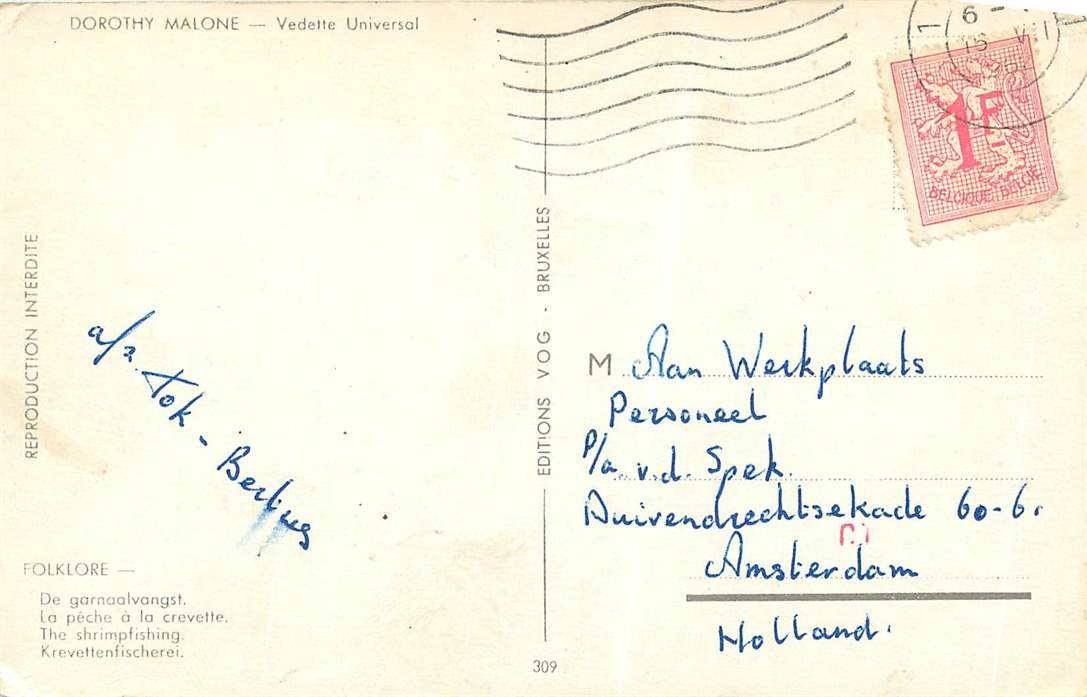 DOROTHY MALONE — Vedette Universal
REPRODUCTION INTERDITE
a/z. Tok - Berling
FOLKLORE —
De garnaalvangst.
La pêche à la crevette.
The shrimpfishing.
Krevettenfischerei.
EDITIONS VOG - BRUXELLES
309
6 -
1F
BELGIQUE-BELGIE
M Aan Werkplaats
Personeel
P/a. v.d. Spek.
Duivendrechtsekade 60-61
Amsterdam
Holland.